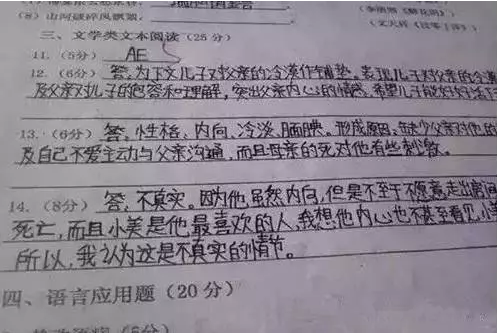 (8) 山河破碎风飘絮,
三、文学类文本阅读 (25分)
11. (5分) AE
12. (6分) 答:为下文儿子对父亲的冷漠作铺垫。表现儿子对父亲的冷漠
及父亲对儿子的包容和理解,突出父亲内心的情感,希望儿子能好好
13. (6分) 答:性格:内向、冷淡、腼腆。形成原因:缺少父亲对他的
及自己不爱主动与父亲沟通,而且母亲的死对他有些刺激。
14. (8分) 答:不真实。因为他虽然内向,但是不至于不愿意走出
死亡,而且小美是他最喜欢的人,我想他内心也不甚至看见,小
所以,我认为这是不真实的情节。
四、语言应用题 (20分)